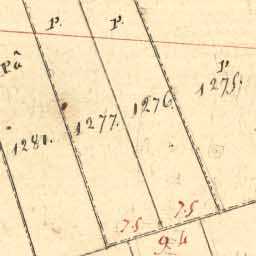 P.
P.
Pâ
P
1275.
1276.
1277.
1281.
75
75
94